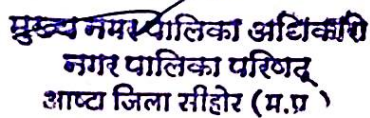 मुख्य नगर पालिका अधिकारी
नगर पालिका परिषद्
आष्टा जिला सीहोर (म.प्र )